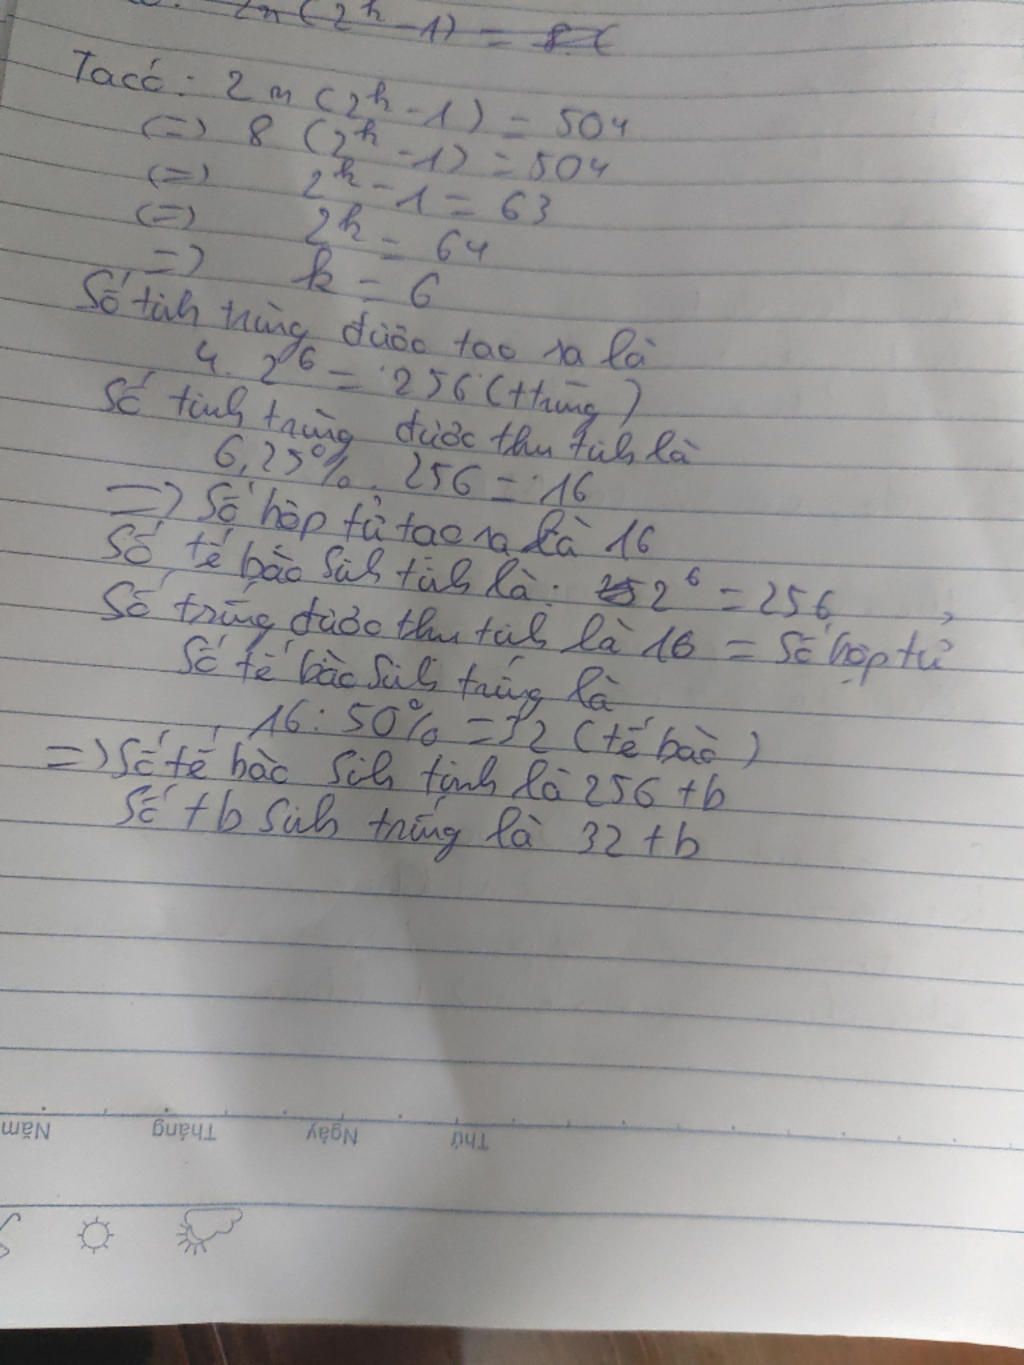 2n(2^k - 1) = 8
Ta có: 2n (2^k - 1) = 504
(=) 8 (2^k - 1) = 504
(=) 2^k - 1 = 63
(=) 2^k = 64
=) k = 6
Số tinh trùng được tạo ra là
4. 2^6 = 256 (ttrùng)
Số tinh trùng được thu tinh là
6,25% . 256 = 16
=) Số hợp tử tạo ra là 16
Số tế bào sinh tinh là: 2^6 = 256,
Số trứng được thu tinh là 16 = Số hợp tử
Số tế bào sinh trứng là
16 : 50% = 32 (tế bào)
=) Số tế bào sinh tinh là 256 tb
Số tb sinh trứng là 32 tb
Năm Tháng Ngày Thứ